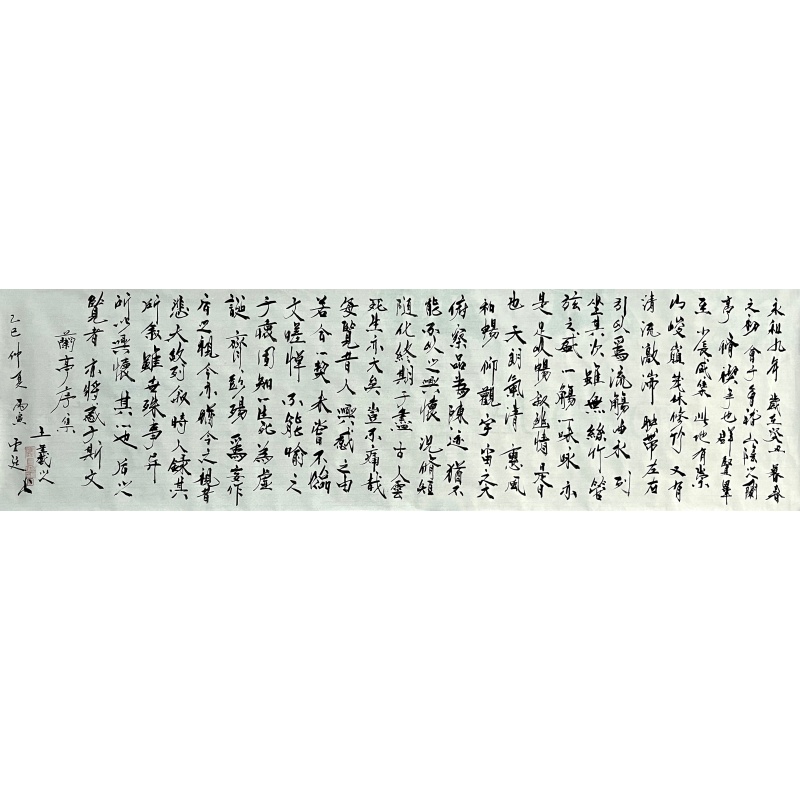 永和九年歲在癸丑暮春
之初會于會稽山陰之蘭
亭脩禊事也群賢畢
至少長咸集此地有崇
山峻嶺茂林修竹又有
清流激湍映帶左右
引以為流觴曲水列
坐其次雖無絲竹管
弦之盛一觴一咏亦
是足以暢敘幽情是日
也天朗氣清惠風
和暢仰觀宇宙之大
俯察品類陳迹猶不
能不以之興懷況脩短
隨化終期于盡古人雲
死生亦大矣豈不痛哉
每覽昔人興感之由
若合一契未嘗不臨
文嗟悼不能喻之
于懷固知一死為虛
誕齊彭殤為妄作
后之視今亦猶今之視昔
悲夫故列敘時人錄其
所敘雖世殊事异
所以興懷其一也后之
覽者亦將感于斯文
蘭亭序集
王羲之
乙巳仲夏